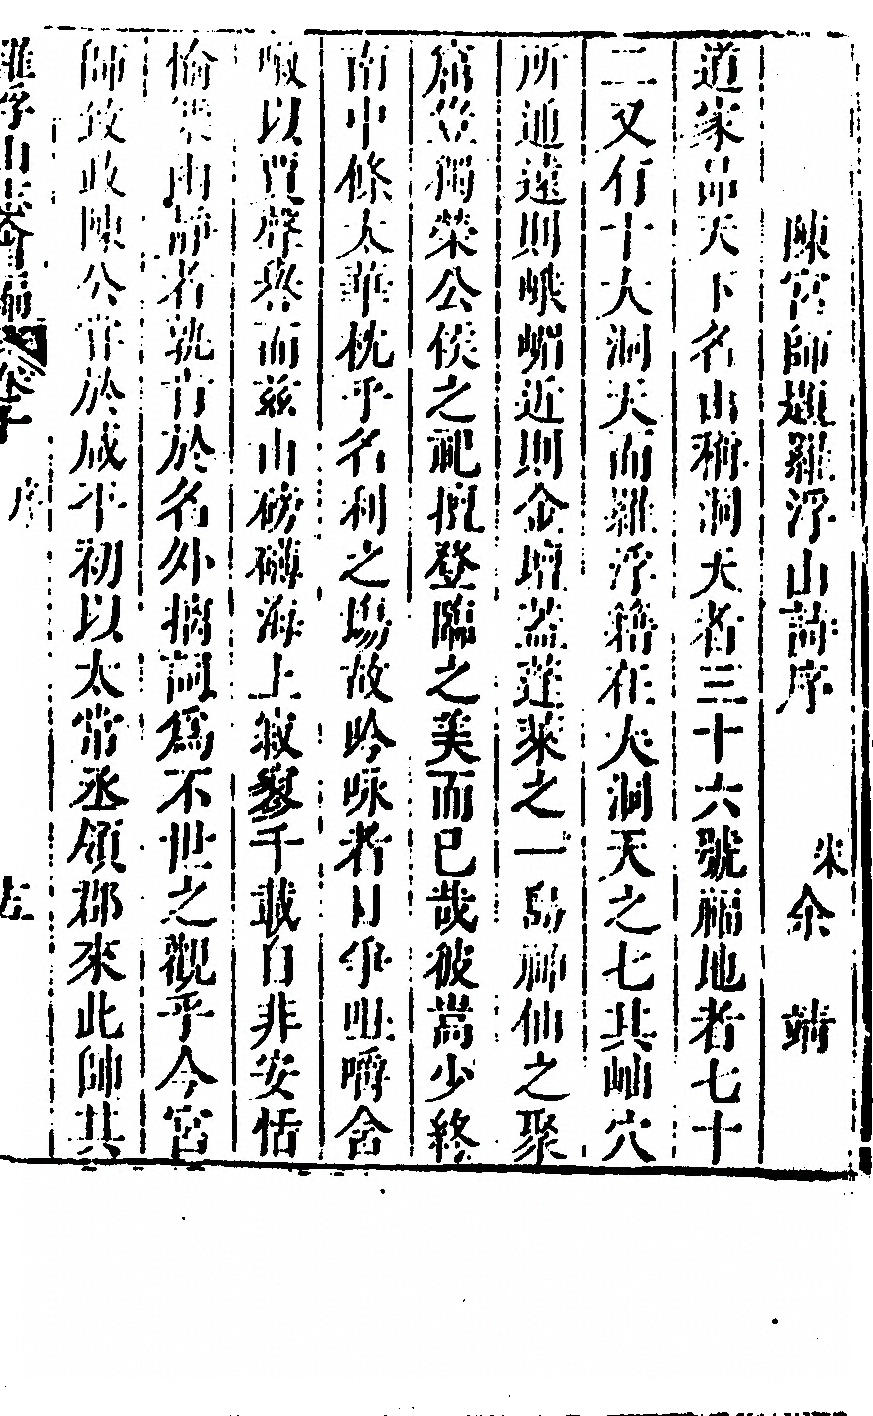 陳宮師題羅浮山詩序　宋余靖
道家品天下名山稱洞天者三十六號福地者七十
二又有十大洞天而羅浮籍在大洞天之七其岫穴
所通遠則峨嵋近則金壇蓋蓬萊之一島神仙之聚
窟豈獨榮公侯之祀擅登臨之美而已哉彼嵩少終
南中條太華枕乎名利之場故吟咏者日爭咀嚼舍
咳以買聲譽而茲山磅礴海上寂寥千載自非安恬
愉樂由靜者孰肯於名外摛詞爲不世之觀乎今宮
師致政陳公昔於咸平初以太常丞領郡來此帥其
羅浮山志會編 卷十 序 左